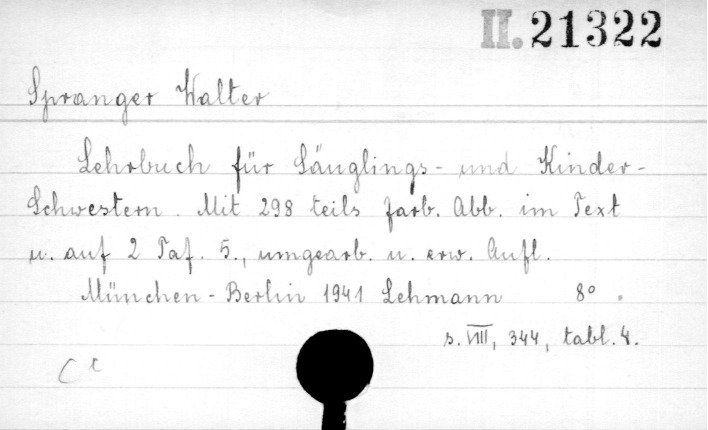 II. 21322
Spranger Walter
Lehrbuch für Säuglings- und Kinder-
Schwestern. Mit 298 teils farb. Abb. im Text
u. auf 2 Taf. 5., umgearb. u. erw. Aufl.
München-Berlin 1941 Lehmann 8° .
s. VIII, 344, tabl.